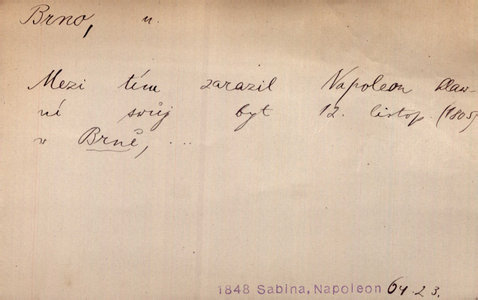 Brno, n.
Mezi tím zarazil Napoleon hlaw-
ní swůj byt 12. listop. (1805)
w Brně, ...
1848 Sabina, Napoleon 64.23.